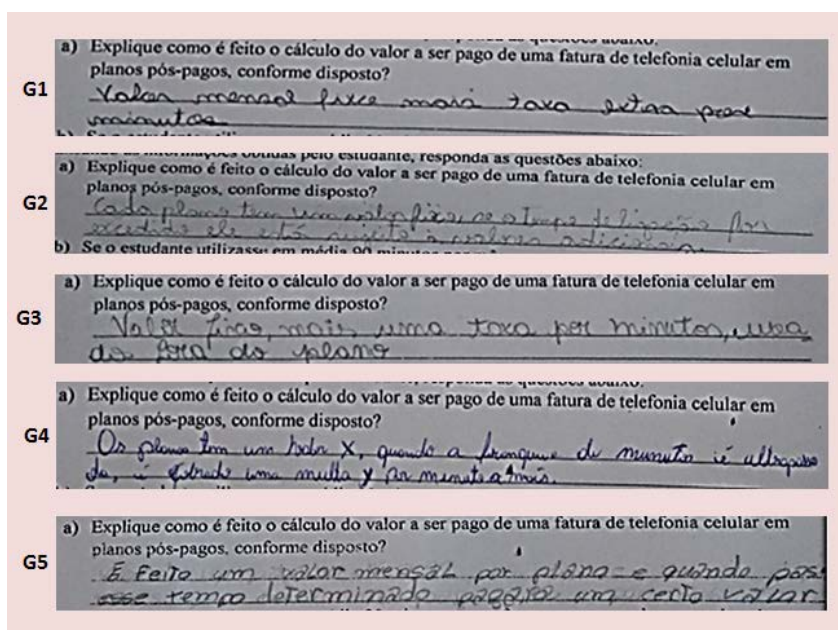 a) Explique como é feito o cálculo do valor a ser pago de uma fatura de telefonia celular em
planos pós-pagos, conforme disposto?
G1
Valor mensal fixce mais taxa extra para
minutos
informações obtidas pelo estudante, responda as questões abaixo:
a) Explique como é feito o cálculo do valor a ser pago de uma fatura de telefonia celular em
planos pós-pagos, conforme disposto?
G2
Cada plano tem um valor fixo, se o tempo de ligação for
excedido ele está sujeito à valores adicionais.
b) Se o estudante utilizasse em média 90
a) Explique como é feito o cálculo do valor a ser pago de uma fatura de telefonia celular em
planos pós-pagos, conforme disposto?
G3
Valor fixo, mais uma taxa por minutos, usa
do fora do plano
a) Explique como é feito o cálculo do valor a ser pago de uma fatura de telefonia celular em
planos pós-pagos, conforme disposto?
G4
Os planos tem um valor X, quando a franquia de minutos é ultrapassa
da, é cobrado uma multa y por minuto a mais.
a) Explique como é feito o cálculo do valor a ser pago de uma fatura de telefonia celular em
planos pós-pagos, conforme disposto?
G5
É Feito um valor mensal por plano e quando pas
esse tempo determinado pagara um certo valor